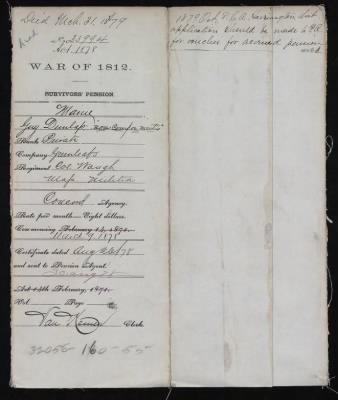 Died Mch. 31. 1879
No. 23994
Act. 1878
WAR OF 1812.
SURVIVORS' PENSION
Maine
Guy Dunlap
Rank Private
Company Greenleaf's
Regiment Col. Waugh
Mass Militia
Concord Agency.
Rate per month—Eight dollars.
Commencing February 14, 1871.
March 9, 1878
Certificate dated Aug 24/78
and sent to Pension Agent.
Act 14th February, 1871.
Vol Page
Clerk.
32056 160-55
1879 Oct.
application should be made to P.A.
for voucher for accrued pension